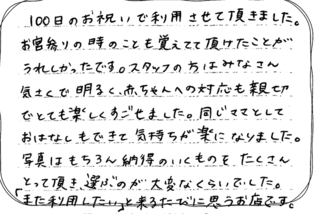 100日のお祝いで利用させて頂きました。
お宮参りの時のことも覚えてて頂けたことが
うれしかったです。スタッフの方はみなさん
気さくで明るく、赤ちゃんへの対応も親切
でとても楽しくすごせました。同じママとして
おはなしもできて気持ちが楽になりました。
写真はもちろん納得のいくものをたくさん
とって頂き、選ぶのが大変なくらいでした。
「また利用したい」と来るたびに思うお店です。